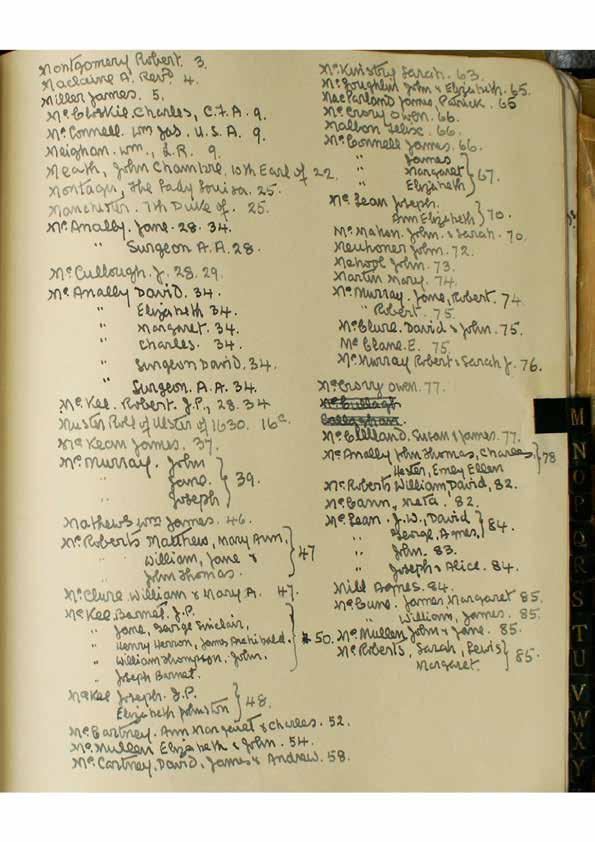 Montgomery Robert. 3.
Maclaine A. Revd. 4.
Miller James. 5.
Mc Closkie. Charles, C.F.A. 9.
Mc Connell. Wm Jas. U.S.A. 9.
Meighan. Wm., L.R. 9.
Meath, John Chambré. 10th Earl of 22.
Montagu, The Lady Louisa. 25.
Manchester. 7th Duke of. 25.
Mc Anally. Jane. 28. 34.
" Surgeon A.A. 28.
Mc Cullough. J. 28. 29.
Mc Anally David. 34.
" Elizabeth 34.
" Margaret. 34.
" Charles. 34.
" Surgeon David. 34.
" Surgeon. A.A. 34.
Mc Kee. Robert. J.P., 28. 34
Muster Roll of Ulster of 1630. 16c.
Mc Kean James. 37.
Mc Murray. John
" Jane. 39.
" Joseph
Mathews Wm James. 46.
Mc Roberts Matthew, Mary Ann,
William, Jane & 47
John Thomas.
Mc Clure William & Mary A. 47.
Mc Kee Barnet. J.P.
" Jane, George Sinclair,
" Henry Herron, James Archibald. 50.
" William Thompson. John.
" Joseph Barnet.
Mc Kee Joseph. J.P.
Elizabeth Johnston 48.
Mc Cartney. Ann Margaret & Charles. 52.
Mc Mullen Elizabeth & John. 54.
Mc Cartney, David, James & Andrew. 58.
Mc Kinstry Sarah. 63.
Mc Loughlin John & Elizabeth. 65.
MacParland James, Patrick. 65
Mc Crory Owen. 66.
Mallon Felix. 66.
Mc Connell James. 66.
" James
" Margaret 67.
" Elizabeth
Mc Lean Joseph.
Ann Elizabeth 70.
Mc Mahon. John. & Sarah. 70.
John. 72.
John. 73.
Martin Mary. 74.
Mc Murray. Jane, Robert. 74.
" Robert. 75.
Mc Clure. David & John. 75.
Mc Clane. E. 75.
Mc Murray Robert & Sarah J. 76.
Mc Crory Owen. 77.
Mc Cullagh
Callaghan
Mc Clelland. Susan & James. 77.
Mc Anally John Thomas, Charles, 78
Hester, Emey Ellen
Mc Roberts William David, 82.
Mc Cann, Meta. 82.
Mc Lean. J.W., David
" George, Agnes, 84.
" John. 83.
" Joseph & Alice. 84.
Mill Agnes. 84.
Mc Cune. James, Margaret 85.
" William, James. 85.
Mc Mullen John & Jane. 85.
Mc Roberts, Sarah, Lewis
Margaret. 85.
M
N
O
P
Q
R
S
T
U
V
W
X
Y